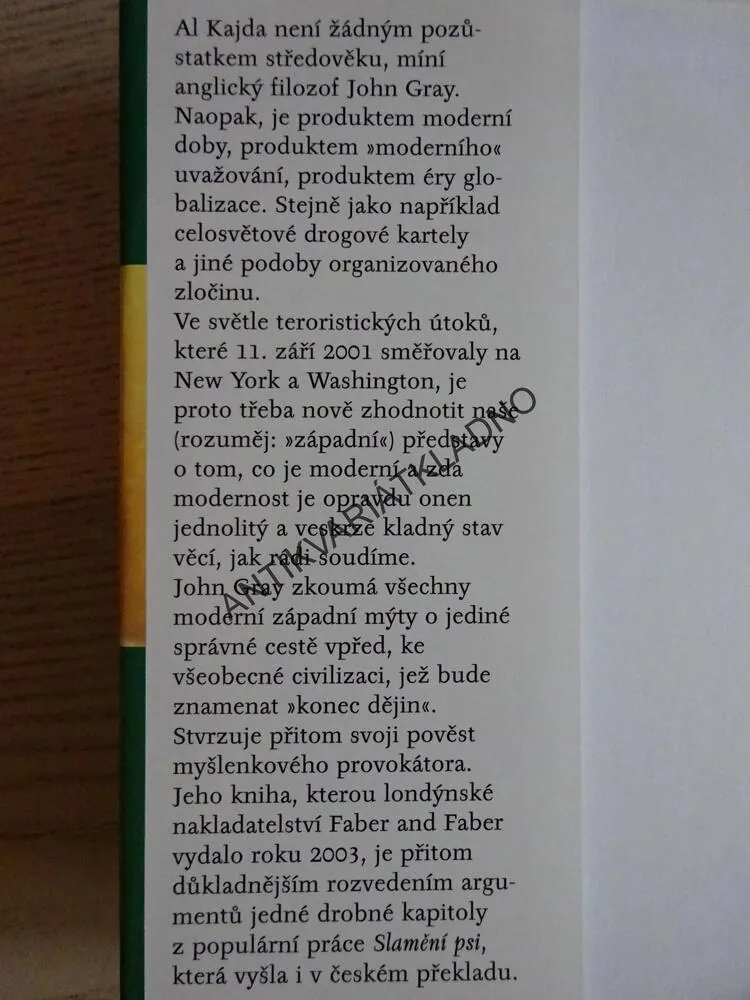 Al Kajda není žádným pozů-
statkem středověku, míní
anglický filozof John Gray.
Naopak, je produktem moderní
doby, produktem »moderního«
uvažování, produktem éry glo-
balizace. Stejně jako například
celosvětové drogové kartely
a jiné podoby organizovaného
zločinu.
Ve světle teroristických útoků,
které 11. září 2001 směřovaly na
New York a Washington, je
proto třeba nově zhodnotit naše
(rozuměj: »západní«) představy
o tom, co je moderní a zda
modernost je opravdu onen
jednolitý a veskrze kladný stav
věcí, jak rádi soudíme.
John Gray zkoumá všechny
moderní západní mýty o jediné
správné cestě vpřed, ke
všeobecné civilizaci, jež bude
znamenat »konec dějin«.
Stvrzuje přitom svoji pověst
myšlenkového provokátora.
Jeho kniha, kterou londýnské
nakladatelství Faber and Faber
vydalo roku 2003, je přitom
důkladnějším rozvedením argu-
mentů jedné drobné kapitoly
z populární práce Slamění psi,
která vyšla i v českém překladu.
ANTIKVARIÁTKLADNO